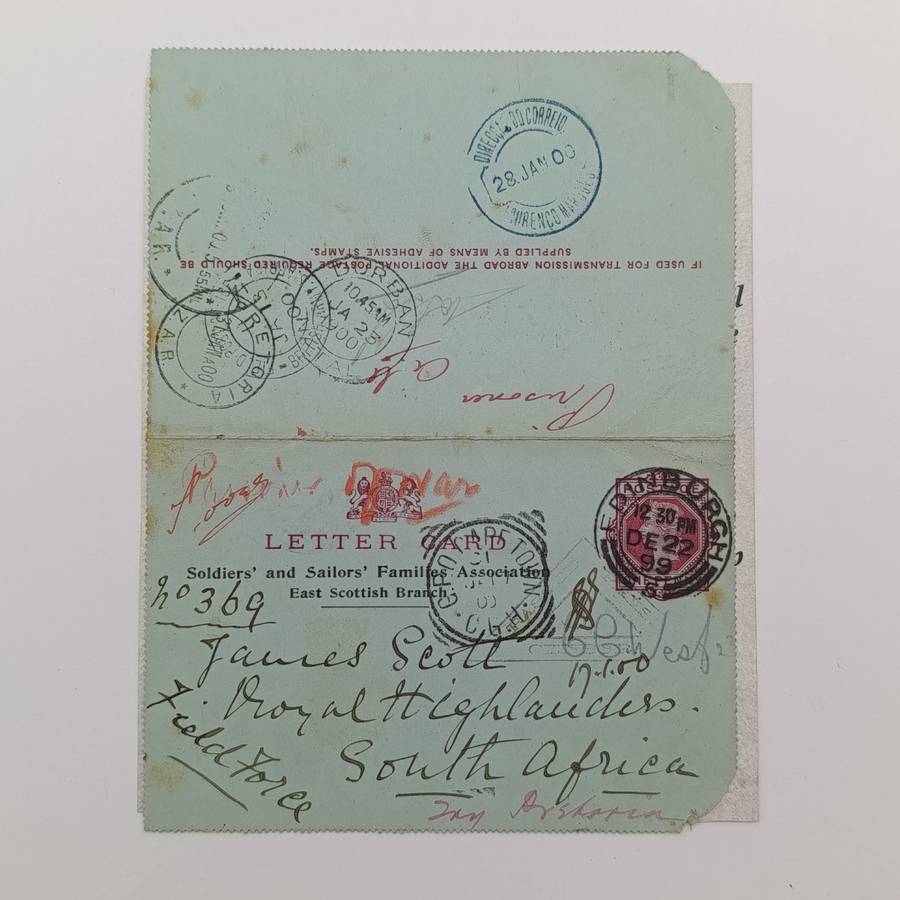 DIRECÇÃO DO CORREIO
28. JAN. 00
LOURENÇO MARQUES
IF USED FOR TRANSMISSION ABROAD THE ADDITIONAL POSTAGE REQUIRED SHOULD BE
SUPPLIED BY MEANS OF ADHESIVE STAMPS.
Z.A.R.
DURBAN
10.45 AM
JA 23
00
NATAL
PRETORIA
Z.A.R.
Prisoner
Prisoner of War
LETTER CARD
Soldiers' and Sailors' Families Association
East Scottish Branch.
EDINBURGH
12 30 PM
DE 22
99
G.P.O. CAPE TOWN
C.G.H.
No 369
James Scott
17.1.00
Royal Highlanders.
Field Force
South Africa
Try Pretoria